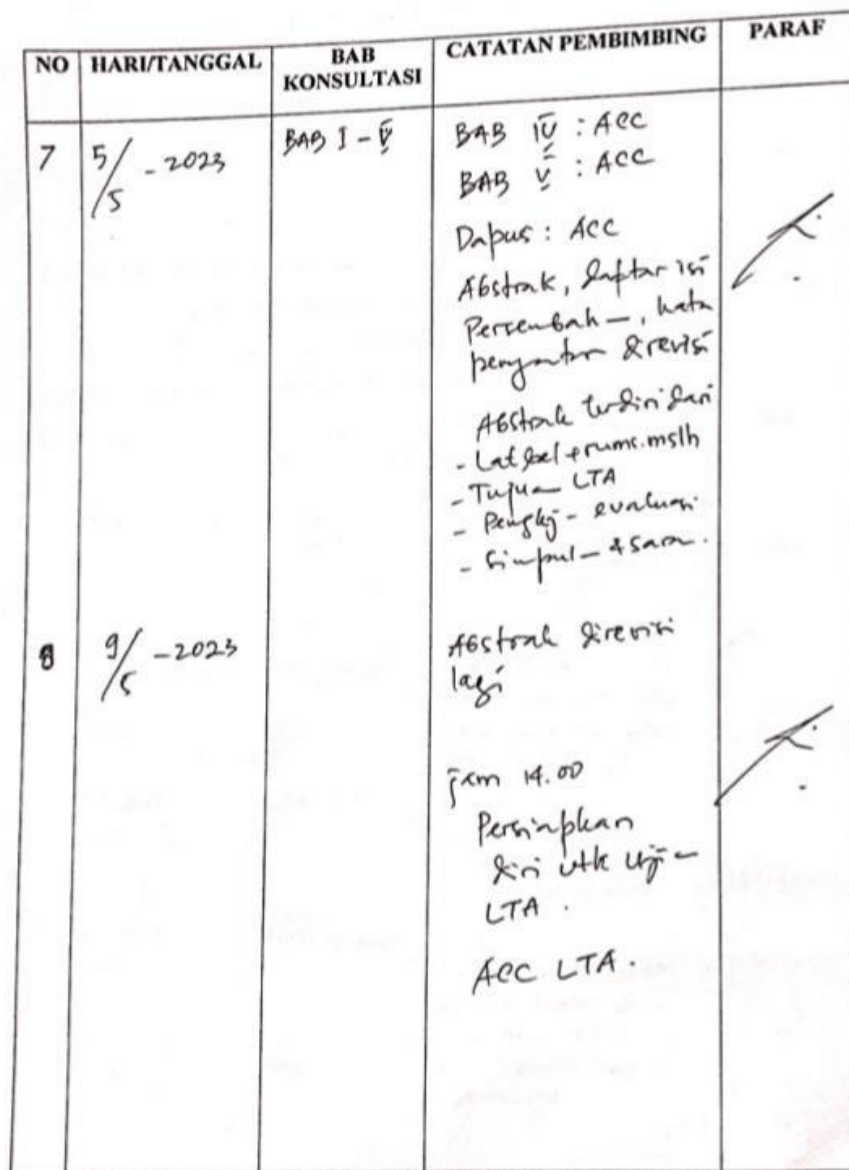 NO HARI/TANGGAL BAB KONSULTASI CATATAN PEMBIMBING PARAF
7 5/5 - 2023 BAB I - V BAB IV : ACC
BAB V : ACC
Dapus : ACC
Abstrak, daftar isi
Persembah—, kata
pengantar direvisi
Abstrak terdiri dari
- Lat bel + rums. mslh
- Tujuan LTA
- Pengkj - evaluasi
- Simpul— & saran.
8 9/5 - 2023 Abstrak direvisi
lagi
jam 14.00
Persiapkan
diri utk uji—
LTA .
ACC LTA .